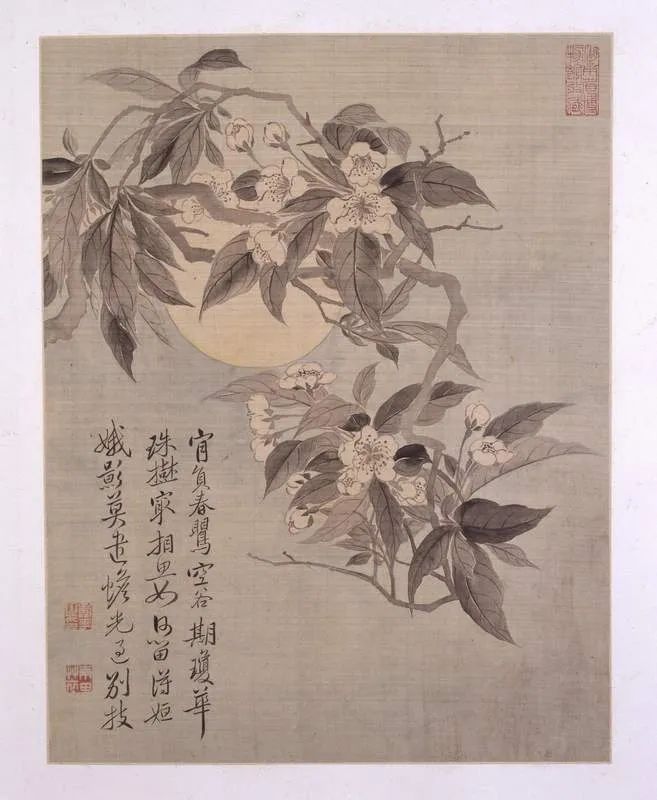 肯負春鶯空谷期瓊華
珠樹冣相思如何留得姮
娥影莫遣蟾光過別枝